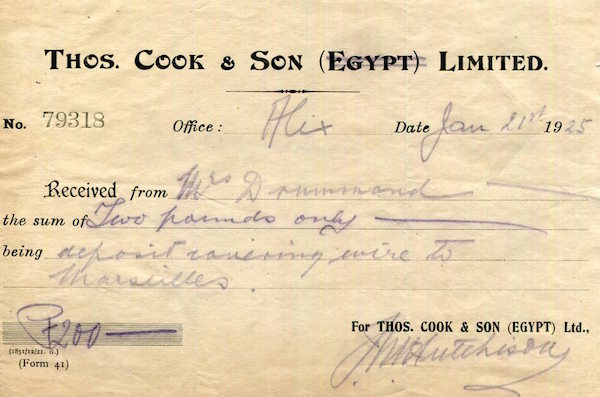 THOS. COOK & SON (EGYPT) LIMITED.
No. 79318 Office: Alix Date Jan 21st 1925
Received from Mrs Drummond
the sum of Two pounds only
being deposit covering wire to
Marseilles.
£200
(1851/12/21. G.)
(Form 41)
For THOS. COOK & SON (EGYPT) Ltd.,
Hutchison